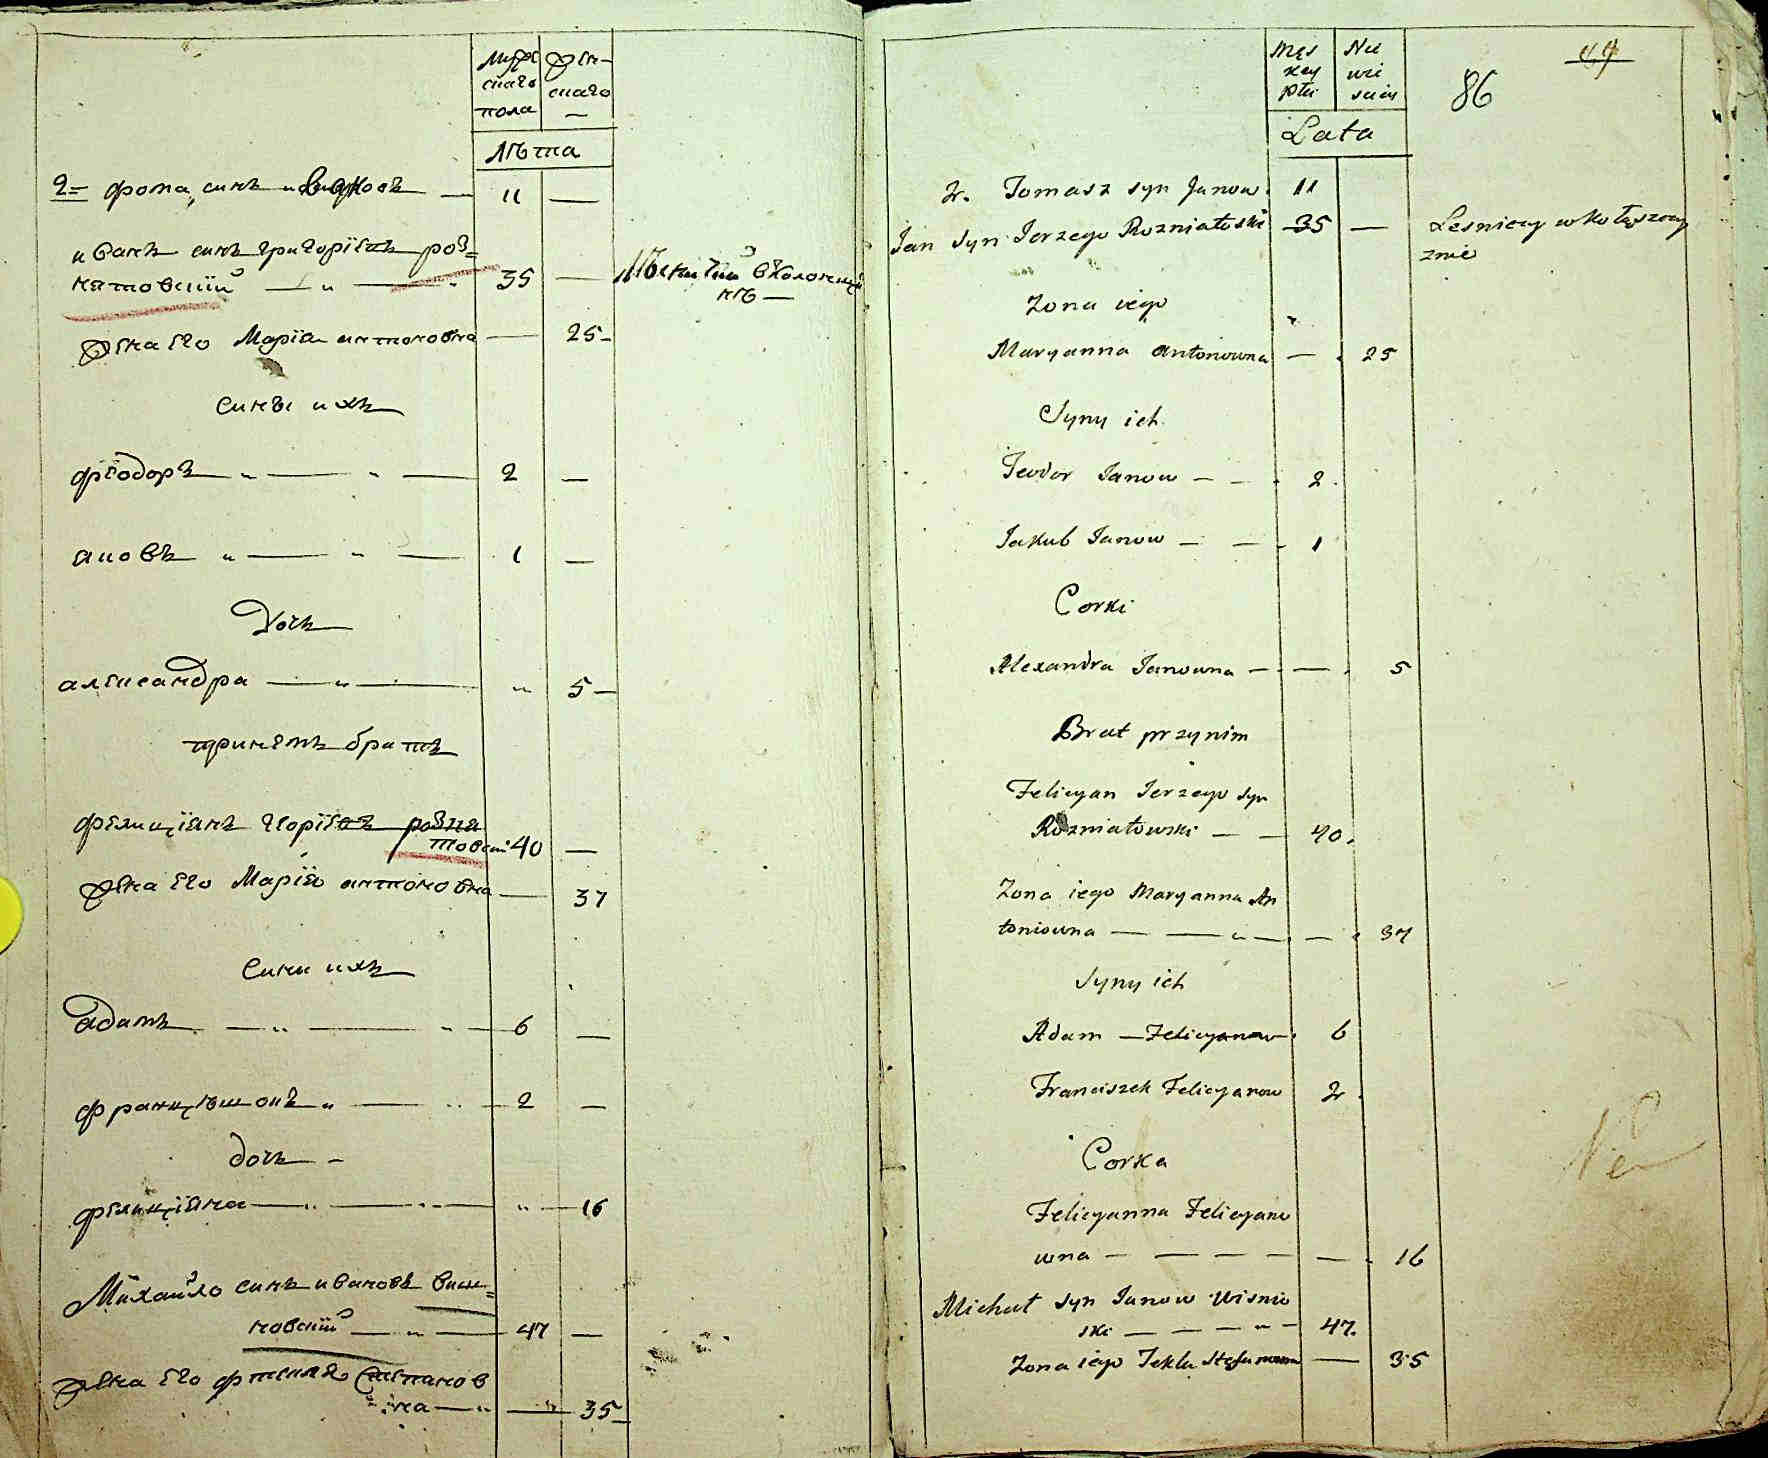 Мужескаго пола
Женскаго
лѣта
2= фома, синъ ивановъ — 11 —
иванъ синъ григоріевъ роз=
нятовскій — „ — 35 —
жена его Маріа антоновна — 25 —
сины ихъ
феодоръ „ — „ — 2 —
яковъ „ — „ — 1 —
Дочь
александра — „ — „ 5 —
принемъ братъ
фелиціянъ
40 —
жена его Марія антоновна — 37
Сини ихъ
адамъ — „ — „ — 6 —
францѣшокъ „ — „ — 2 —
дочь —
фелиціяна — „ — „ — „ — 16
Михайло синъ ивановъ виш=
новскій — „ — 47 —
жена его Степанов
на — „ — „ 35 —
Męs
key
płci
Nie
wie
sciey
86
Lata
2. Tomasz syn Janow. 11
Jan syn Jerzego Rozniatoski 35 — Lesniczy w
znie
Zona iego
Maryanna Antonowna — 25
Syny ich
Teodor Janow — — 2.
Jakub Janow — — 1
Corki
Alexandra Janowna — — 5
Brat przynim
Felicyan Jerzego syn
Rozniatowski — — 40.
Zona iego Maryanna An
toniowna — — „ — — 37
Syny ich
Adam — Felicyanow. 6
Franciszek Felicyanow 2.
Corka
Felicyanna Felicyano
wna — — — — — 16
Michał syn Janow Wisnio
ski — — — „ — 47.
Zona iego Tekla Stefanowna — 35